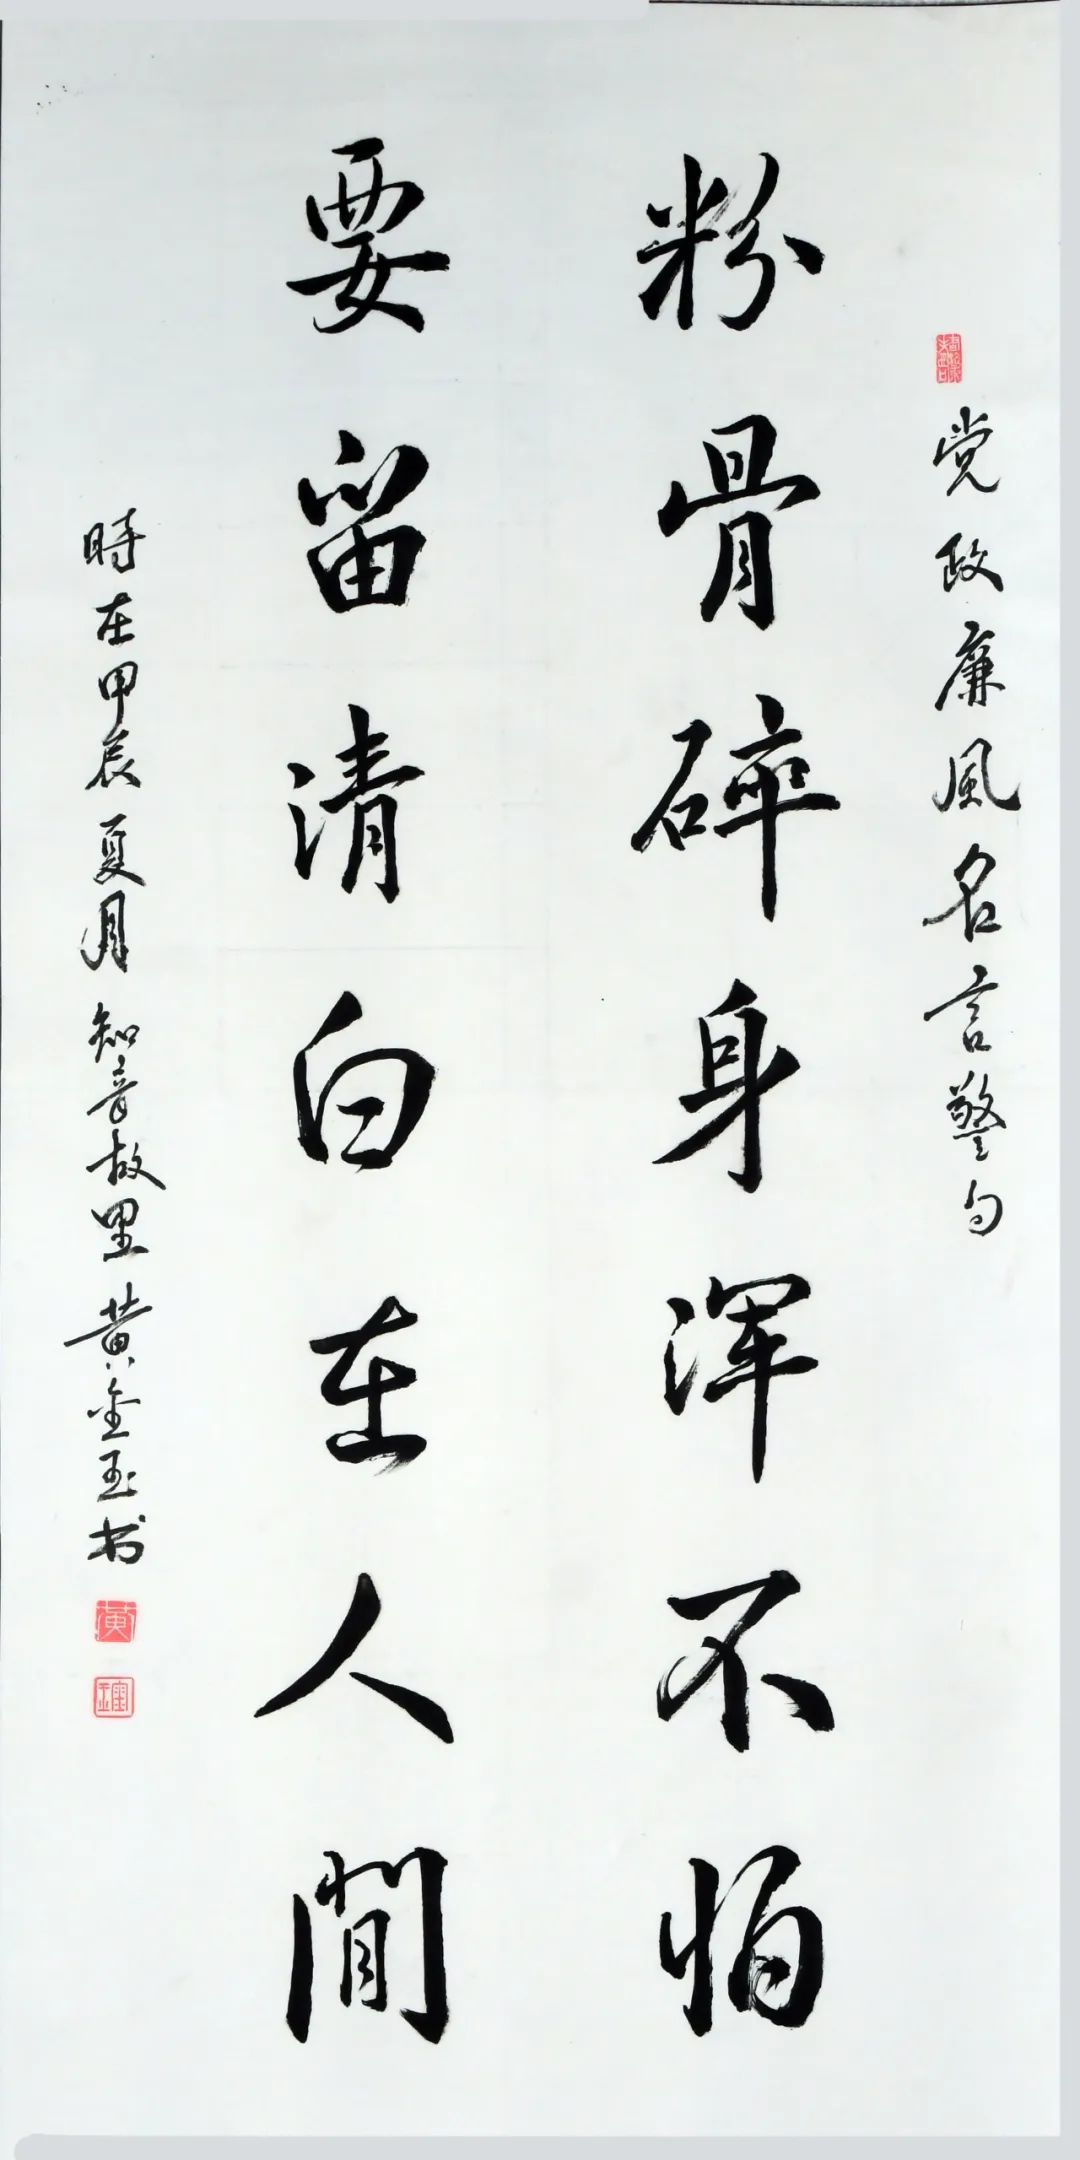 党政廉風名言警句
粉骨碎身浑不怕
要留清白在人間
時在甲辰夏月知音故里黄金玉书
黄